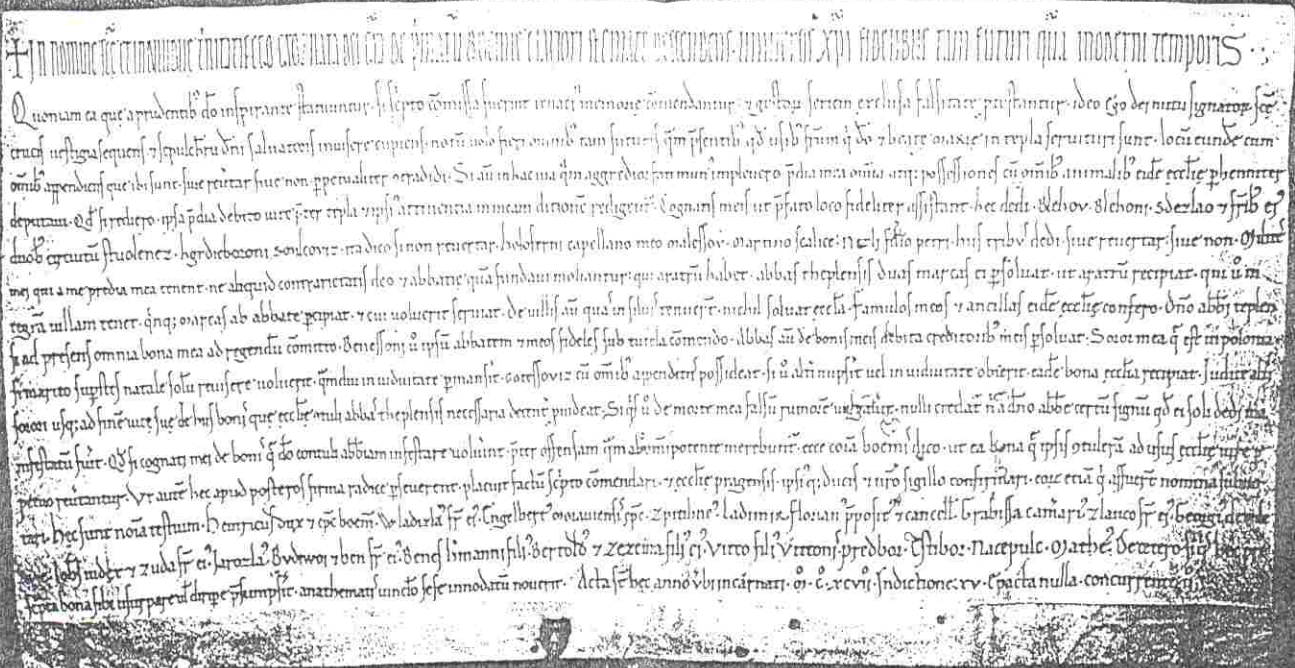 In nomine sce et individue trinitatis ego universis Xpi fidelibus tam futuri quā moderni temporis
Quoniam ea que a prudentib; do inspirante statuuntur, si scripto comissa fuerint tenaci memorie comendantur, & gestoȝ seriem exclusa falsitate prestantur, ideo ego dei nutu signatoȝ sce
crucis vestigia sequens & sepulchrū dni salvatoris invisere cupiens notū volo fieri omnib; tam futuris qm psentib; qd usib; frum q do & beate marie in tepla servituri sunt locū eundē cum
omib; appendiciis que ibi sunt, sive revtar sive non, ppetualiter tradidi. Si aū in hac via qm aggredior fati mun implevero pdia mea omia atq; possessiones cū omib; animalib; eidē ecclie phenniter
deputavi. Qd si rediero, ipsa pdia debito iure pter tepla & ipsi attinentia in meam ditione redigent. Cognatis meis ut pfato loco fideliter assistant hec dedi. Blehov Blehoni Sdezlao & frib ei
duob; Stuolenez. hgrdieboroni Sovlcoviz. ita dico si non revertar. holoferni capellano meo malessov. martino scalice filio petri. his tribus dedi, sive revertar, sive non. Milites
mei qui a me predia mea tenent, ne aliquid contrarietatis deo & abbatie quā fundavi moliantur, qui aratrū habet, abbas theplensis duas marcas ei psolvat, ut aratrū recipiat, qui v in
tegrā villam tenet, qnq; marcas ab abbate pcipiat, & cui voluerit serviat. De villis aū quas in silvis tenuert, nichil solvat eccla. Famulos meos & ancillas eidē ecclie confero. Dno abbi teplen
si ad presens omnia bona mea ad regendū comitto. Benessoni v ipsū abbatem & meos fideles sub tutela comendo. Abbas aū de bonis meis debita creditorib; meis psolvat. Soror mea q est in polonia
si marito supstes natale solū revisere voluerit, qmdiu in viduitate pmansit, coressoviz cū omib; appenditiis possideat, si v altri nupsit vel in viduitate obierit, eadē bona eccla recipiat. Judite alti
sorori usq; ad finē vite sue de his bonis que ecclie otuli abbas theplensis necessaria decent pvideat. Si qs v de morte mea falsū rumorē vulgavit, nulli credat n a dno abbe certū signū qd ei soli dedi
infestatū fuit. Qd si cognati mei de bonis q do contuli abbiam infestare voluint, pter offensam qm ab omipotente merebunt, ecce corā boemis dico, ut ea bona q ipsis otulerā ad usus ecclie iure p
petuo revtantur. Ut autē hec apud posteros firma radice pseverent, placuit factū scripto comendari, & ecclie pragensis, ipsiq; ducis & nro sigillo confirmari, eoȝ etiā q affuert nomina subno
tari. Hec sunt noia testium. Henricus dux & epc boem. Wladizla fr ei. Engelbert moraviensis epc. Zpitiline. Ladimir. Florian pposit & cancell. Grabissa camari & zlauco fr ei. Georgi de
iudex & zuda fr ei. Jarozla. Bvdwoi & ben fr ei. Benes himanni fili. Bertold & zezema fili ei. Vitco fili Vittoni. predbor. Tstibor. Nacepulc. Mathe. De cetero si qs hec pre
scpta bona sibi usurpare vl diripe psumpsit, anathematis vinclo sese innodatū noverit. Acta st hec anno vbi incarnati. M. C. xcvii. Indictione xv. Epacta nulla. concurrente